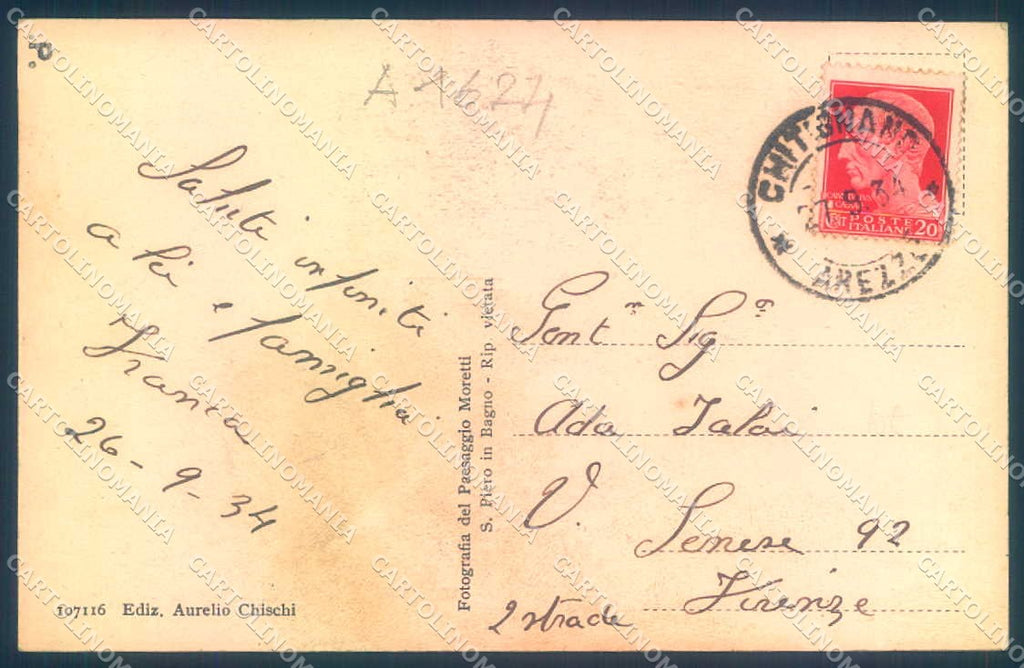 P.
A A624
Saluti infiniti
a lei e famiglia
Franca
26-9-34
107116 Ediz. Aurelio Chischi
Fotografia del Paesaggio Moretti
S. Piero in Bagno - Rip vietata
CHITIGNANO
AREZZO
POSTE
ITALIANE 20
Gent ma Sig ra
Ada
V. Senese 92
2 strade Firenze
CARTOLINOMANIA